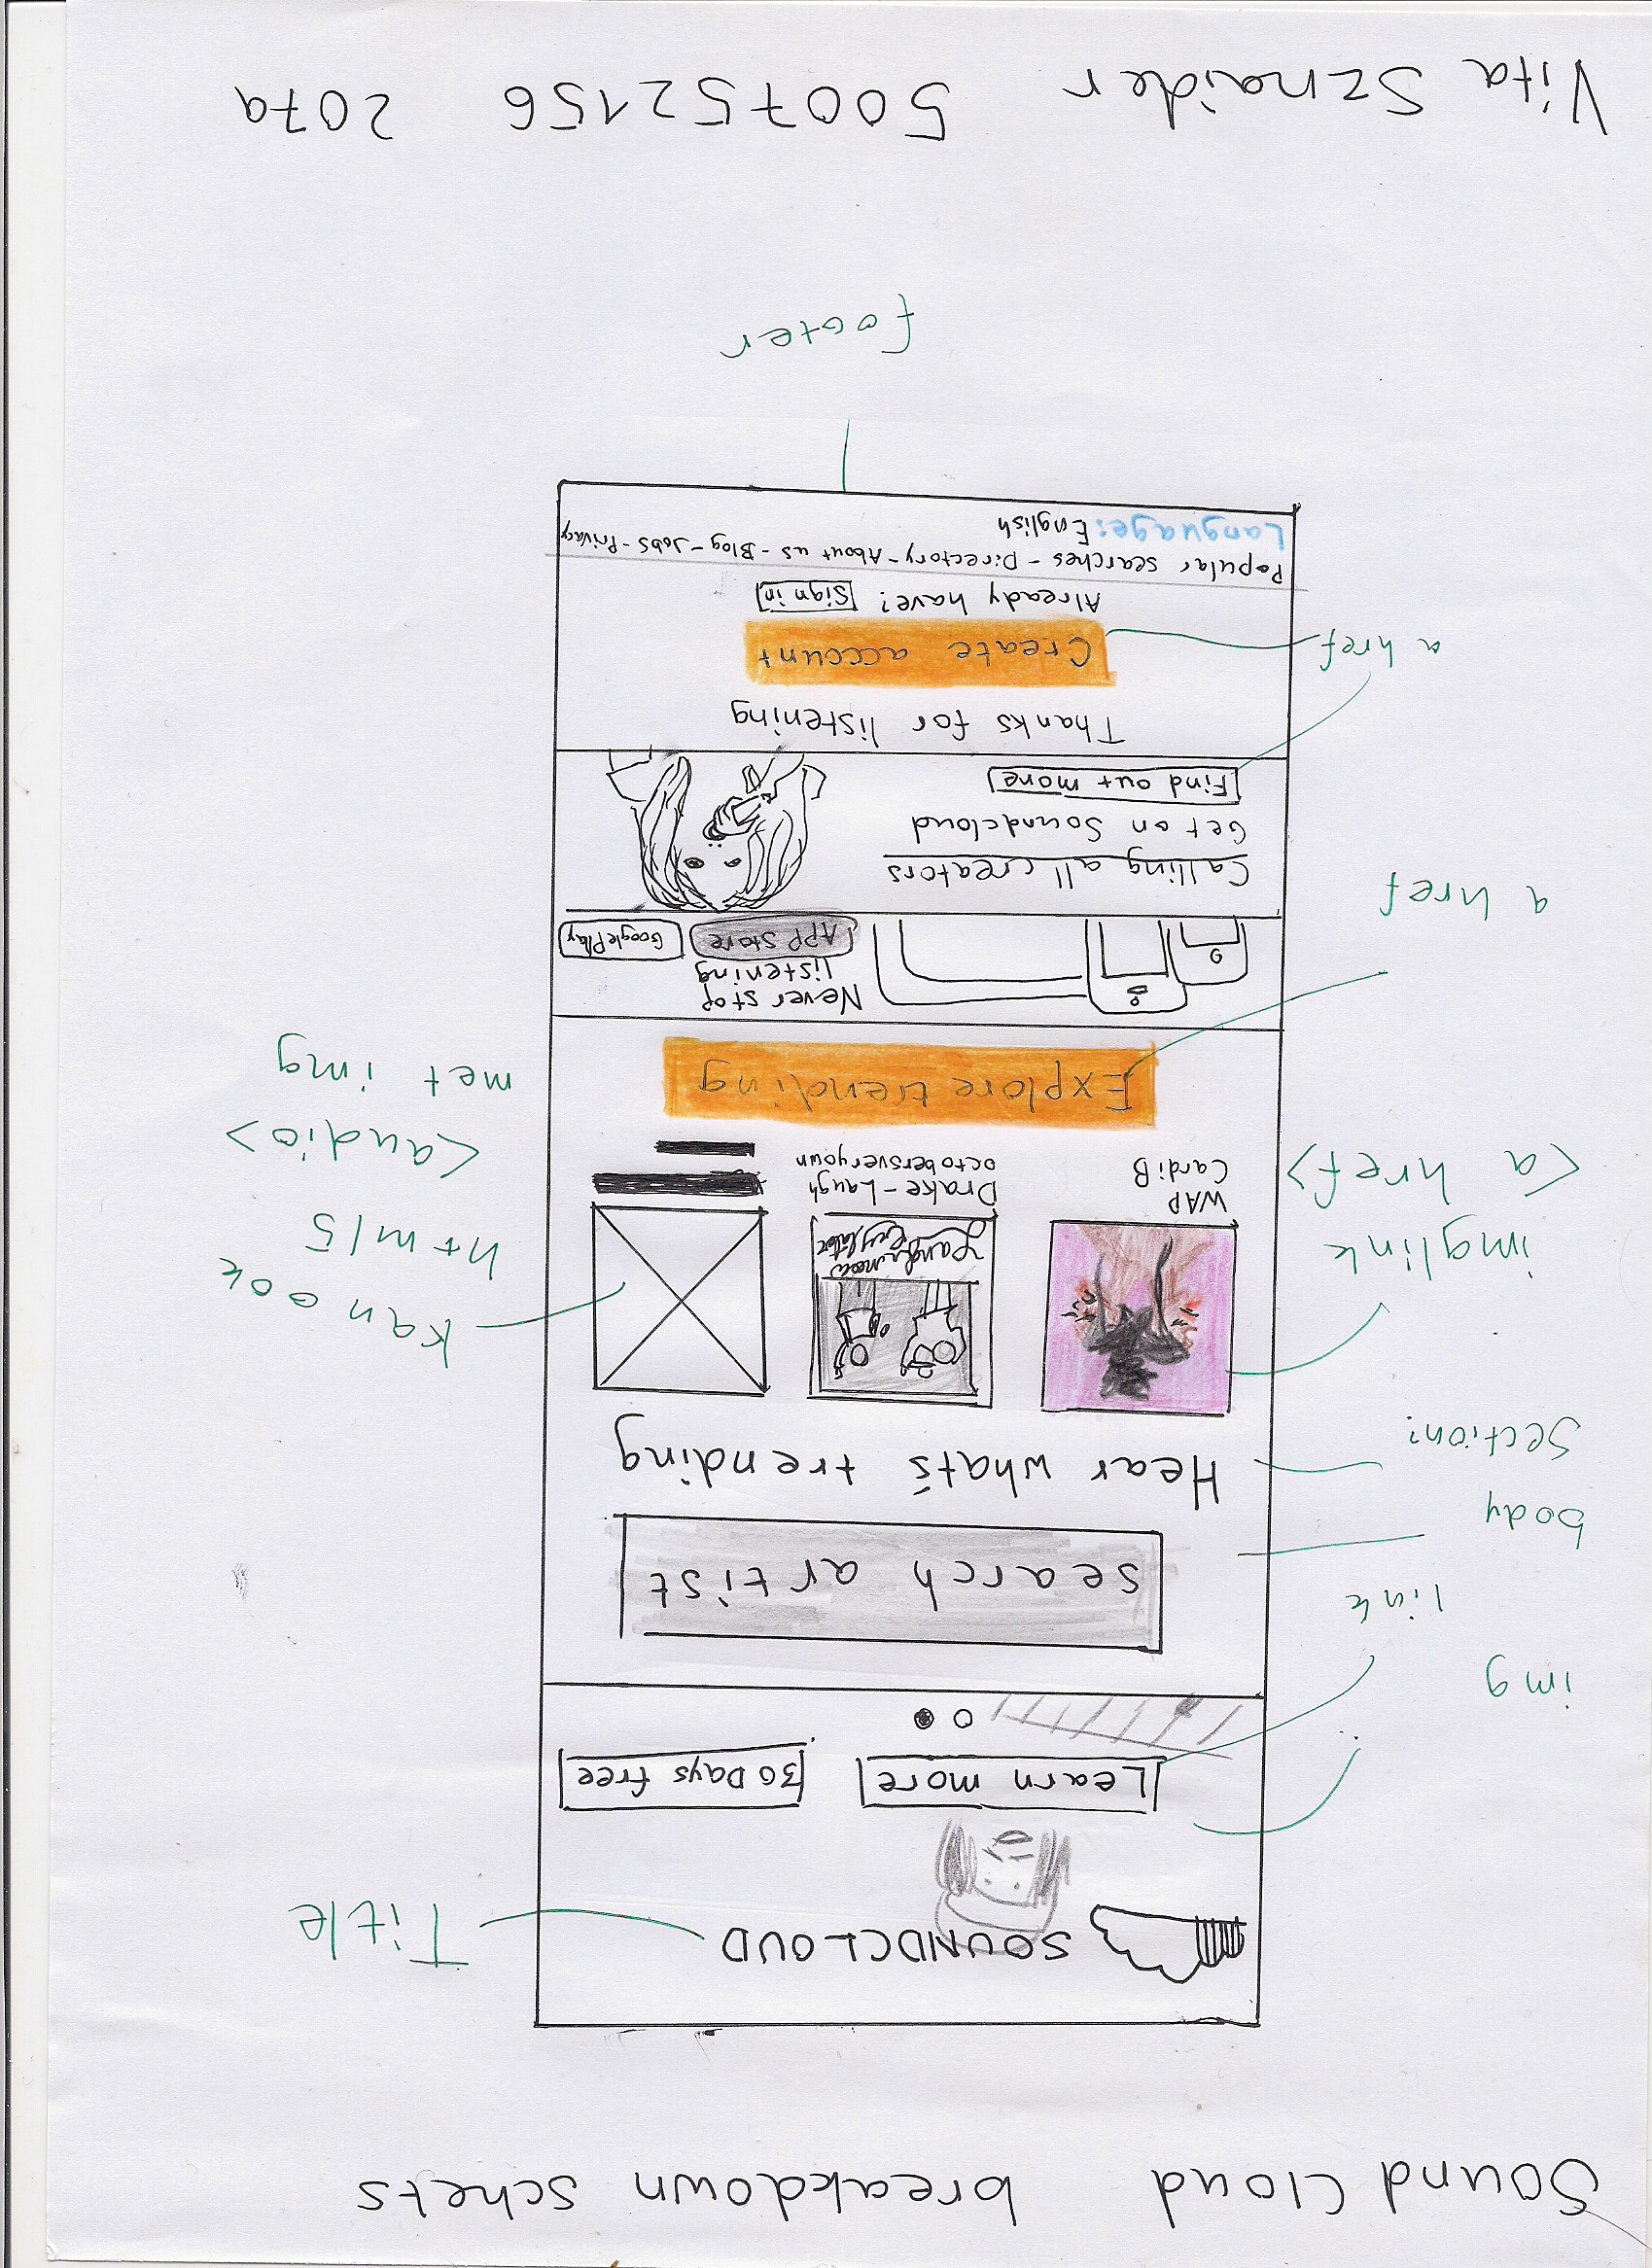 Sound Cloud breakdown schets
SOUNDCLOUD
Title
Learn more
30 Days free
img
link
search artist
body
Hear what's trending
section?
kan ook
html5
<audio>
met img
imglink
<a href>
Laugh now
Cry later
WAP
Cardi B
Drake - Laugh
octobersveryown
Explore trending
Never stop
listening
APP Store
Google Play
a href
Calling all creators
Get on Soundcloud
Find out more
Thanks for listening
Create account
a href
Already have? Sign in
Popular searches - Directory - About us - Blog - Jobs - Privacy
Language: English
footer
Vita Sznaider 500752156 207a